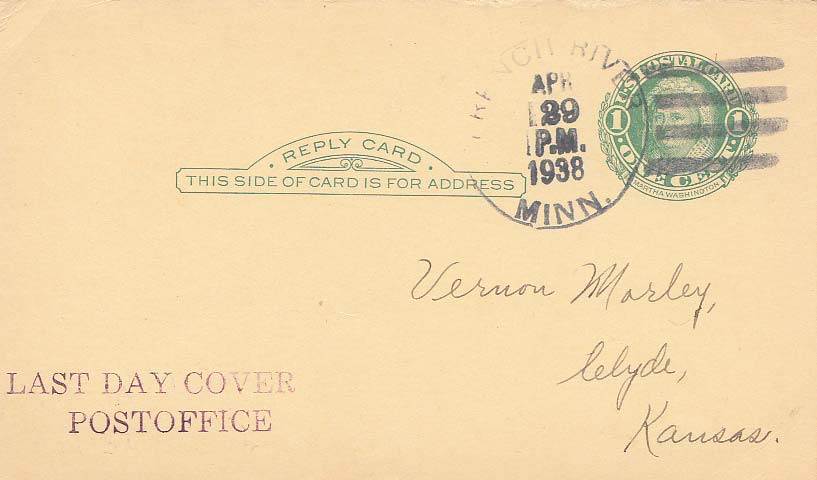 FRENCH RIVER
APR
29
P.M.
1938
MINN.
U.S. POSTAL CARD
1 1
ONE CENT
MARTHA WASHINGTON
REPLY CARD
THIS SIDE OF CARD IS FOR ADDRESS
Vernon Morley,
Clyde,
Kansas.
LAST DAY COVER
POSTOFFICE